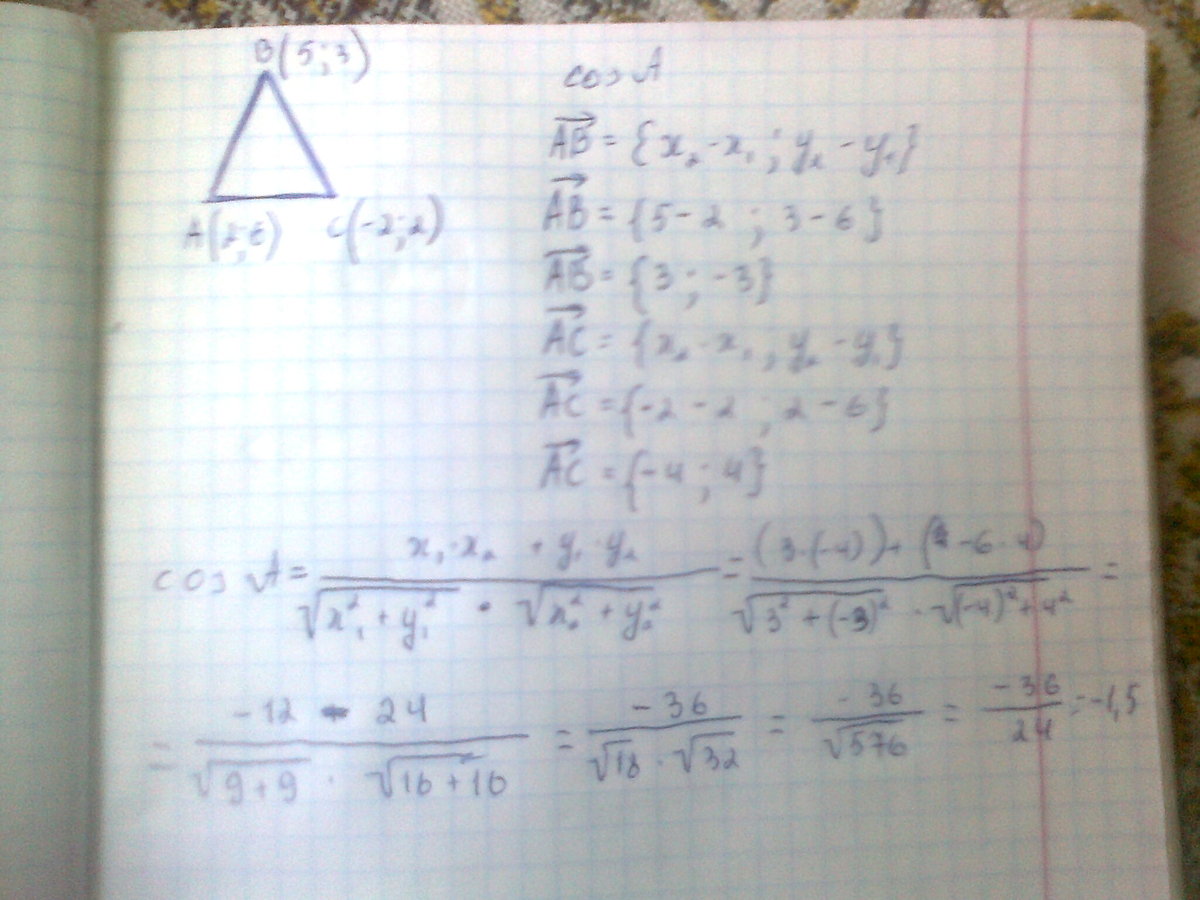 B(5;3)
A(2;6) C(-2;2)
cos A
AB = {x₂-x₁ ; y₂-y₁}
AB = {5-2 ; 3-6}
AB = {3 ; -3}
AC = {x₂-x₁ ; y₂-y₁}
AC = {-2-2 ; 2-6}
AC = {-4 ; 4}
cos A = (x₁·x₂ + y₁·y₂)/(√(x₁²+y₁²) · √(x₂²+y₂²)) = ((3·(-4))+(-6·4))/(√(3²+(-3)²) · √((-4)²+4²)) =
= (-12 - 24)/(√(9+9) · √(16+16)) = -36/(√18 · √32) = -36/√576 = -36/24 = -1,5